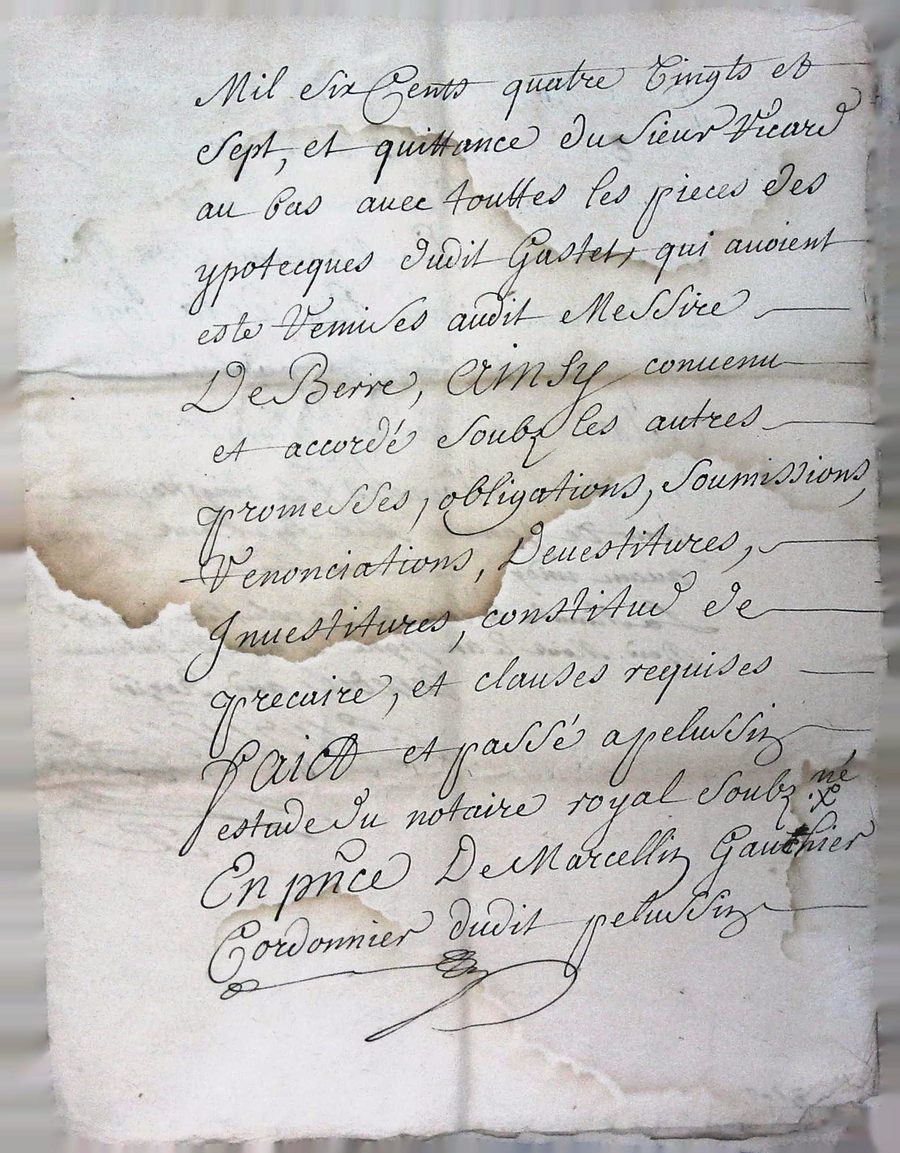 Mil Six Cents quatre Vingts et
Sept, et quittance du Sieur Vicard
au bas avec touttes les pieces des
ypotecques dudit Gastet, qui avoient
este Remises audit Messire
De Berre, Ainsy convenu
et accordé Soubz les autres
promesses, obligations, Soumissions,
Renonciations, Devestitures,
Investitures, constitud de
precaire, et clauses requises
Faict et passé a pelussin
estude du notaire royal Soubz.né
En pñce De Marcellin Gauthier
Cordonnier dudit pelussin